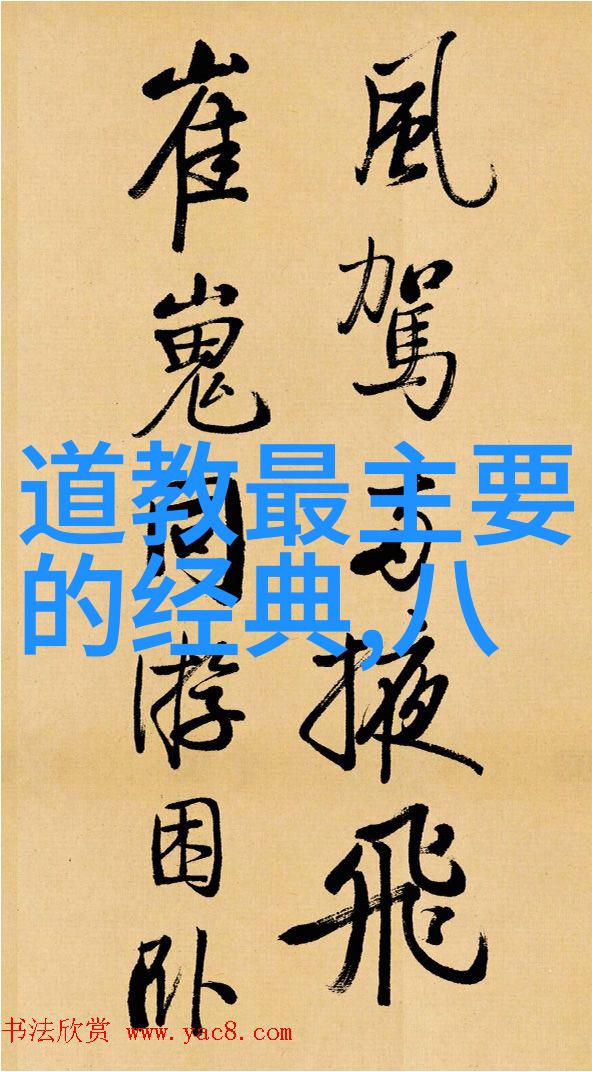 風駕掖飛
崔嵬周游困卧
道教最主要
的经典,八
书法欣赏 www.yac8.com